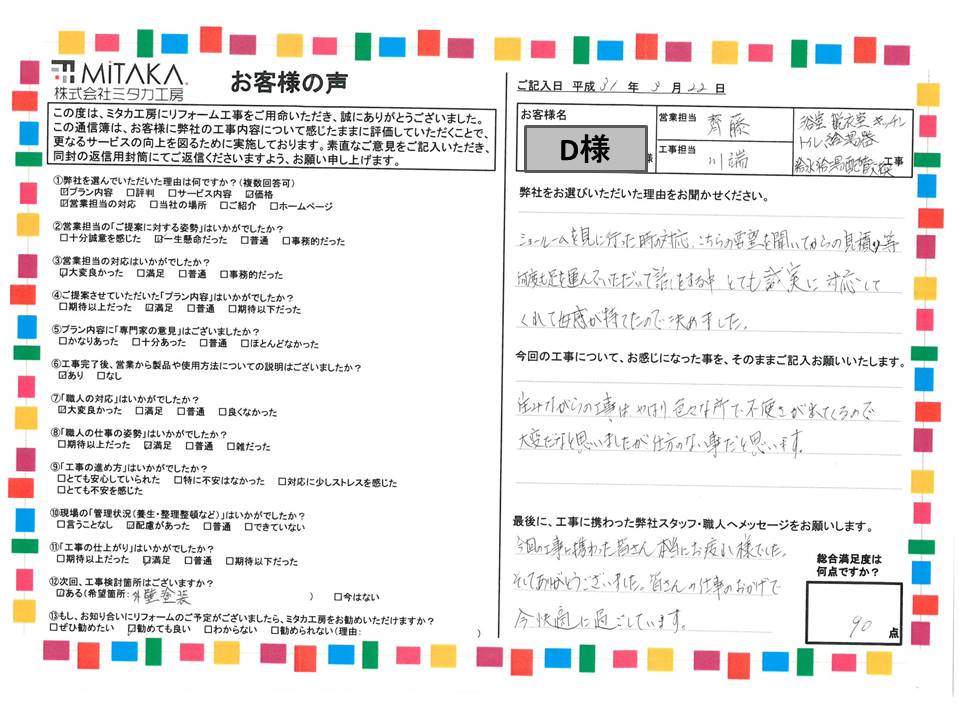 MiTAKA
株式会社ミタカ工房
お客様の声
この度は、ミタカ工房にリフォーム工事をご用命いただき、誠にありがとうございました。
この通信簿は、お客様に弊社の工事内容について感じたままに評価していただくことで、
更なるサービスの向上を図るために実施しております。素直なご意見をご記入いただき、
同封の返信用封筒にてご返信くださいますよう、お願い申し上げます。
①弊社を選んでいただいた理由は何ですか?(複数回答可)
☑プラン内容 □評判 □サービス内容 ☑価格
☑営業担当の対応 □当社の場所 □ご紹介 □ホームページ
②営業担当の「ご提案に対する姿勢」はいかがでしたか?
□十分誠意を感じた ☑一生懸命だった □普通 □事務的だった
③営業担当の対応はいかがでしたか?
☑大変良かった □満足 □普通 □事務的だった
④ご提案させていただいた「プラン内容」はいかがでしたか?
□期待以上だった ☑満足 □普通 □期待以下だった
⑤プラン内容に「専門家の意見」はございましたか?
□かなりあった □十分あった □普通 □ほとんどなかった
⑥工事完了後、営業から製品や使用方法についての説明はございましたか?
☑あり □なし
⑦「職人の対応」はいかがでしたか?
☑大変良かった □満足 □普通 □良くなかった
⑧「職人の仕事の姿勢」はいかがでしたか?
□期待以上だった ☑満足 □普通 □雑だった
⑨「工事の進め方」はいかがでしたか?
□とても安心していられた □特に不安はなかった □対応に少しストレスを感じた
□とても不安を感じた
⑩現場の「管理状況(養生・整理整頓など)」はいかがでしたか?
□言うことなし ☑配慮があった □普通 □できていない
⑪「工事の仕上がり」はいかがでしたか?
□期待以上だった ☑満足 □普通 □期待以下だった
⑫次回、工事検討箇所はございますか?
☑ある(希望箇所:外壁塗装 ) □今はない
⑬もし、お知り合いにリフォームのご予定がございましたら、ミタカ工房をお勧めいただけますか?
□ぜひ勧めたい ☑勧めても良い □わからない □勧められない(理由: )
ご記入日 平成 31 年 3 月 22 日
お客様名
D様
様
営業担当 齊藤
工事担当 川端
浴室 脱衣室 キッチン
トイレ 給湯器
給水給湯配管 工事
弊社をお選びいただいた理由をお聞かせください。
ショールームを見に行った時の対応、こちらの要望を聞いてからの見積り等
何度も足を運んでいただいて話しをする中 とても誠実に対応して
くれて好感が持てたので決めました。
今回の工事について、お感じになった事を、そのままご記入お願いいたします。
住みながらの工事は、やはり色々な所で不便さが出てくるので
大変だなと思いましたが仕方のない事だと思います。
最後に、工事に携わった弊社スタッフ・職人へメッセージをお願いします。
今回の工事に携わった皆さん本当にお疲れ様でした。
そしてありがとうございました。皆さんの仕事のおかげで
今快適に過ごしています。
総合満足度は
何点ですか?
90 点